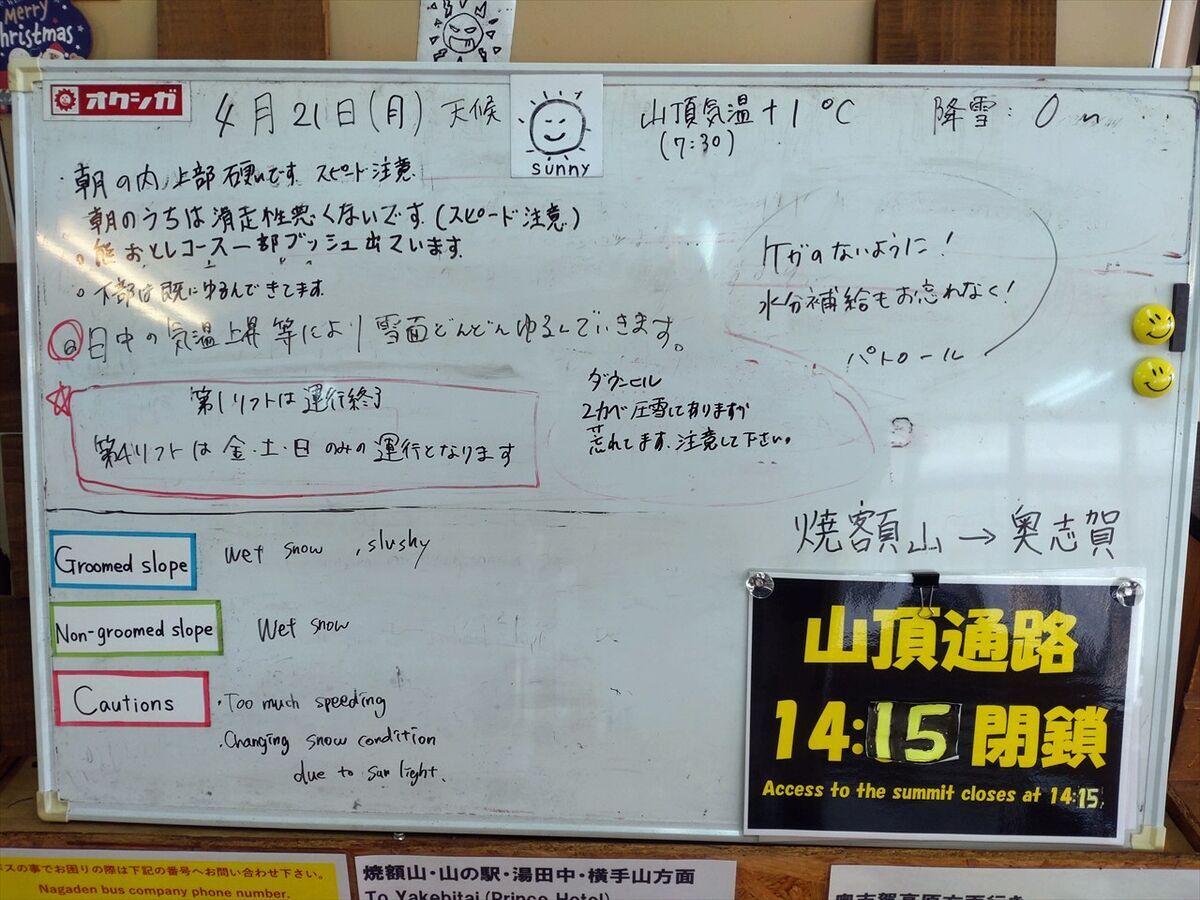 Merry
Christmas
オクシガ
4月21日(月) 天候
sunny
山頂気温 +1℃
(7:30)
降雪: 0
・朝の内、上部硬いです。スピード注意
朝のうちは滑走性悪くないです。(スピード注意)
○熊おとしコース一部ブッシュ出ています。
○下部は既にゆるんできてます。
日中の気温上昇等により雪面どんどんゆるんでいきます。
ケガのないように!
水分補給もお忘れなく!
パトロール
第1リフトは運行終了
第4リフトは金・土・日のみの運行となります
ダウンヒル
圧雪して有りますが
荒れてます。注意して下さい。
焼額山→奥志賀
Groomed slope
wet snow , slushy
Non-groomed slope
Wet snow
Cautions
・Too much speeding
・Changing snow condition
due to sun light.
山頂通路
14:15 閉鎖
Access to the summit closes at 14:15
スの事でお困りの際は下記の番号へお問い合わせ下さい。
Nagaden bus company phone number.
焼額山・山の駅・湯田中・横手山方面
To Yakebitai (Prince Hotel)
奥志賀高原方面行き